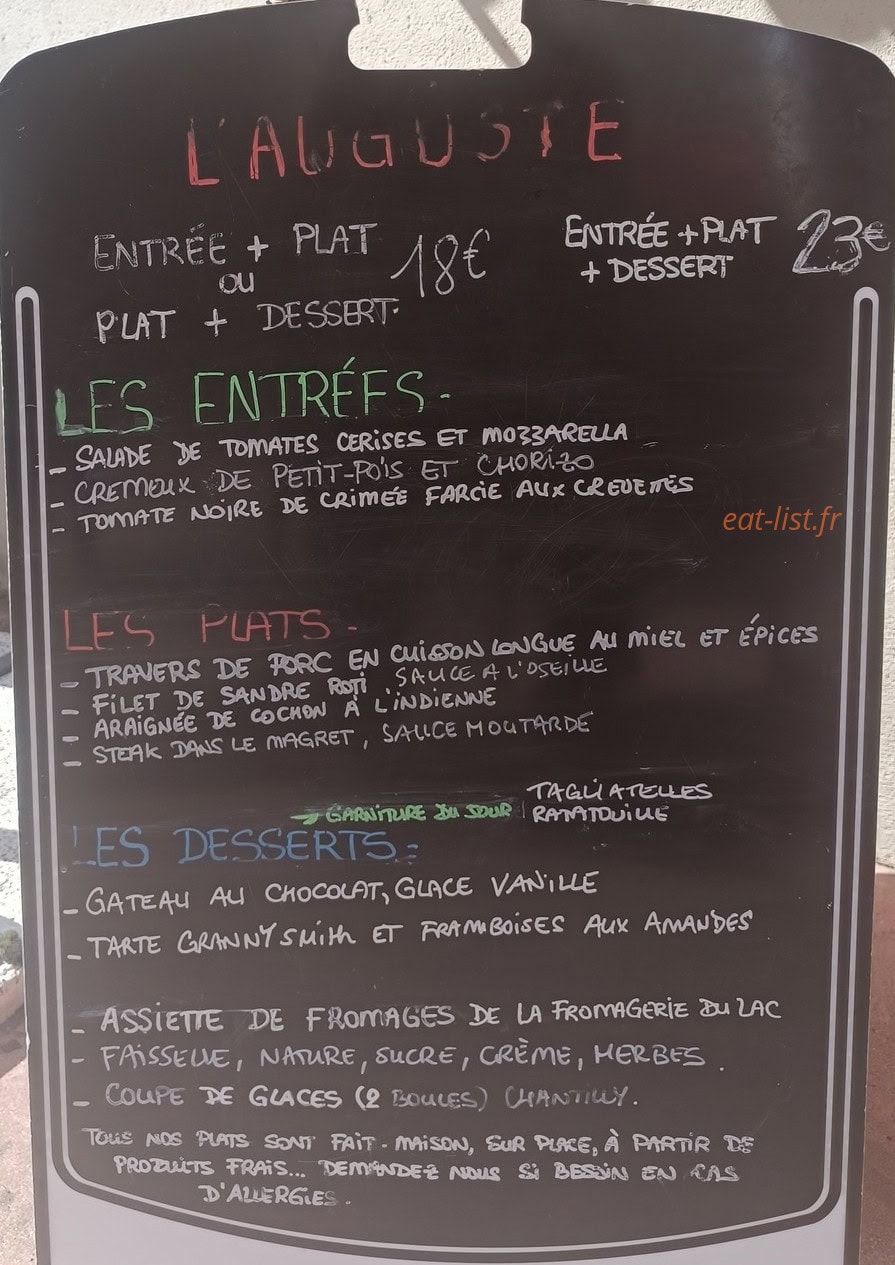 L'AUGUSTE
ENTRÉE + PLAT
OU
PLAT + DESSERT.
18€
ENTRÉE + PLAT
+ DESSERT
23€
LES ENTRÉES -
- SALADE DE TOMATES CERISES ET MOZZARELLA
- CREMEUX DE PETIT-POIS ET CHORIZO
- TOMATE NOIRE DE CRIMÉE FARCIE AUX CREVETTES
eat-list.fr
LES PLATS -
- TRAVERS DE PORC EN CUISSON LONGUE AU MIEL ET ÉPICES
- FILET DE SANDRE ROTI, SAUCE A L'OSEILLE
- ARAIGNÉE DE COCHON À L'INDIENNE
- STEAK DANS LE MAGRET, SAUCE MOUTARDE
→ GARNITURE DU JOUR
TAGLIATELLES
RATATOUILLE
LES DESSERTS -
- GATEAU AU CHOCOLAT, GLACE VANILLE
- TARTE GRANNY SMITH ET FRAMBOISES AUX AMANDES
- ASSIETTE DE FROMAGES DE LA FROMAGERIE DU LAC
- FAISSELLE, NATURE, SUCRE, CRÈME, HERBES.
- COUPE DE GLACES (2 BOULES) CHANTILLY.
TOUS NOS PLATS SONT FAIT-MAISON, SUR PLACE, À PARTIR DE
PRODUITS FRAIS... DEMANDEZ NOUS SI BESOIN EN CAS
D'ALLERGIES.